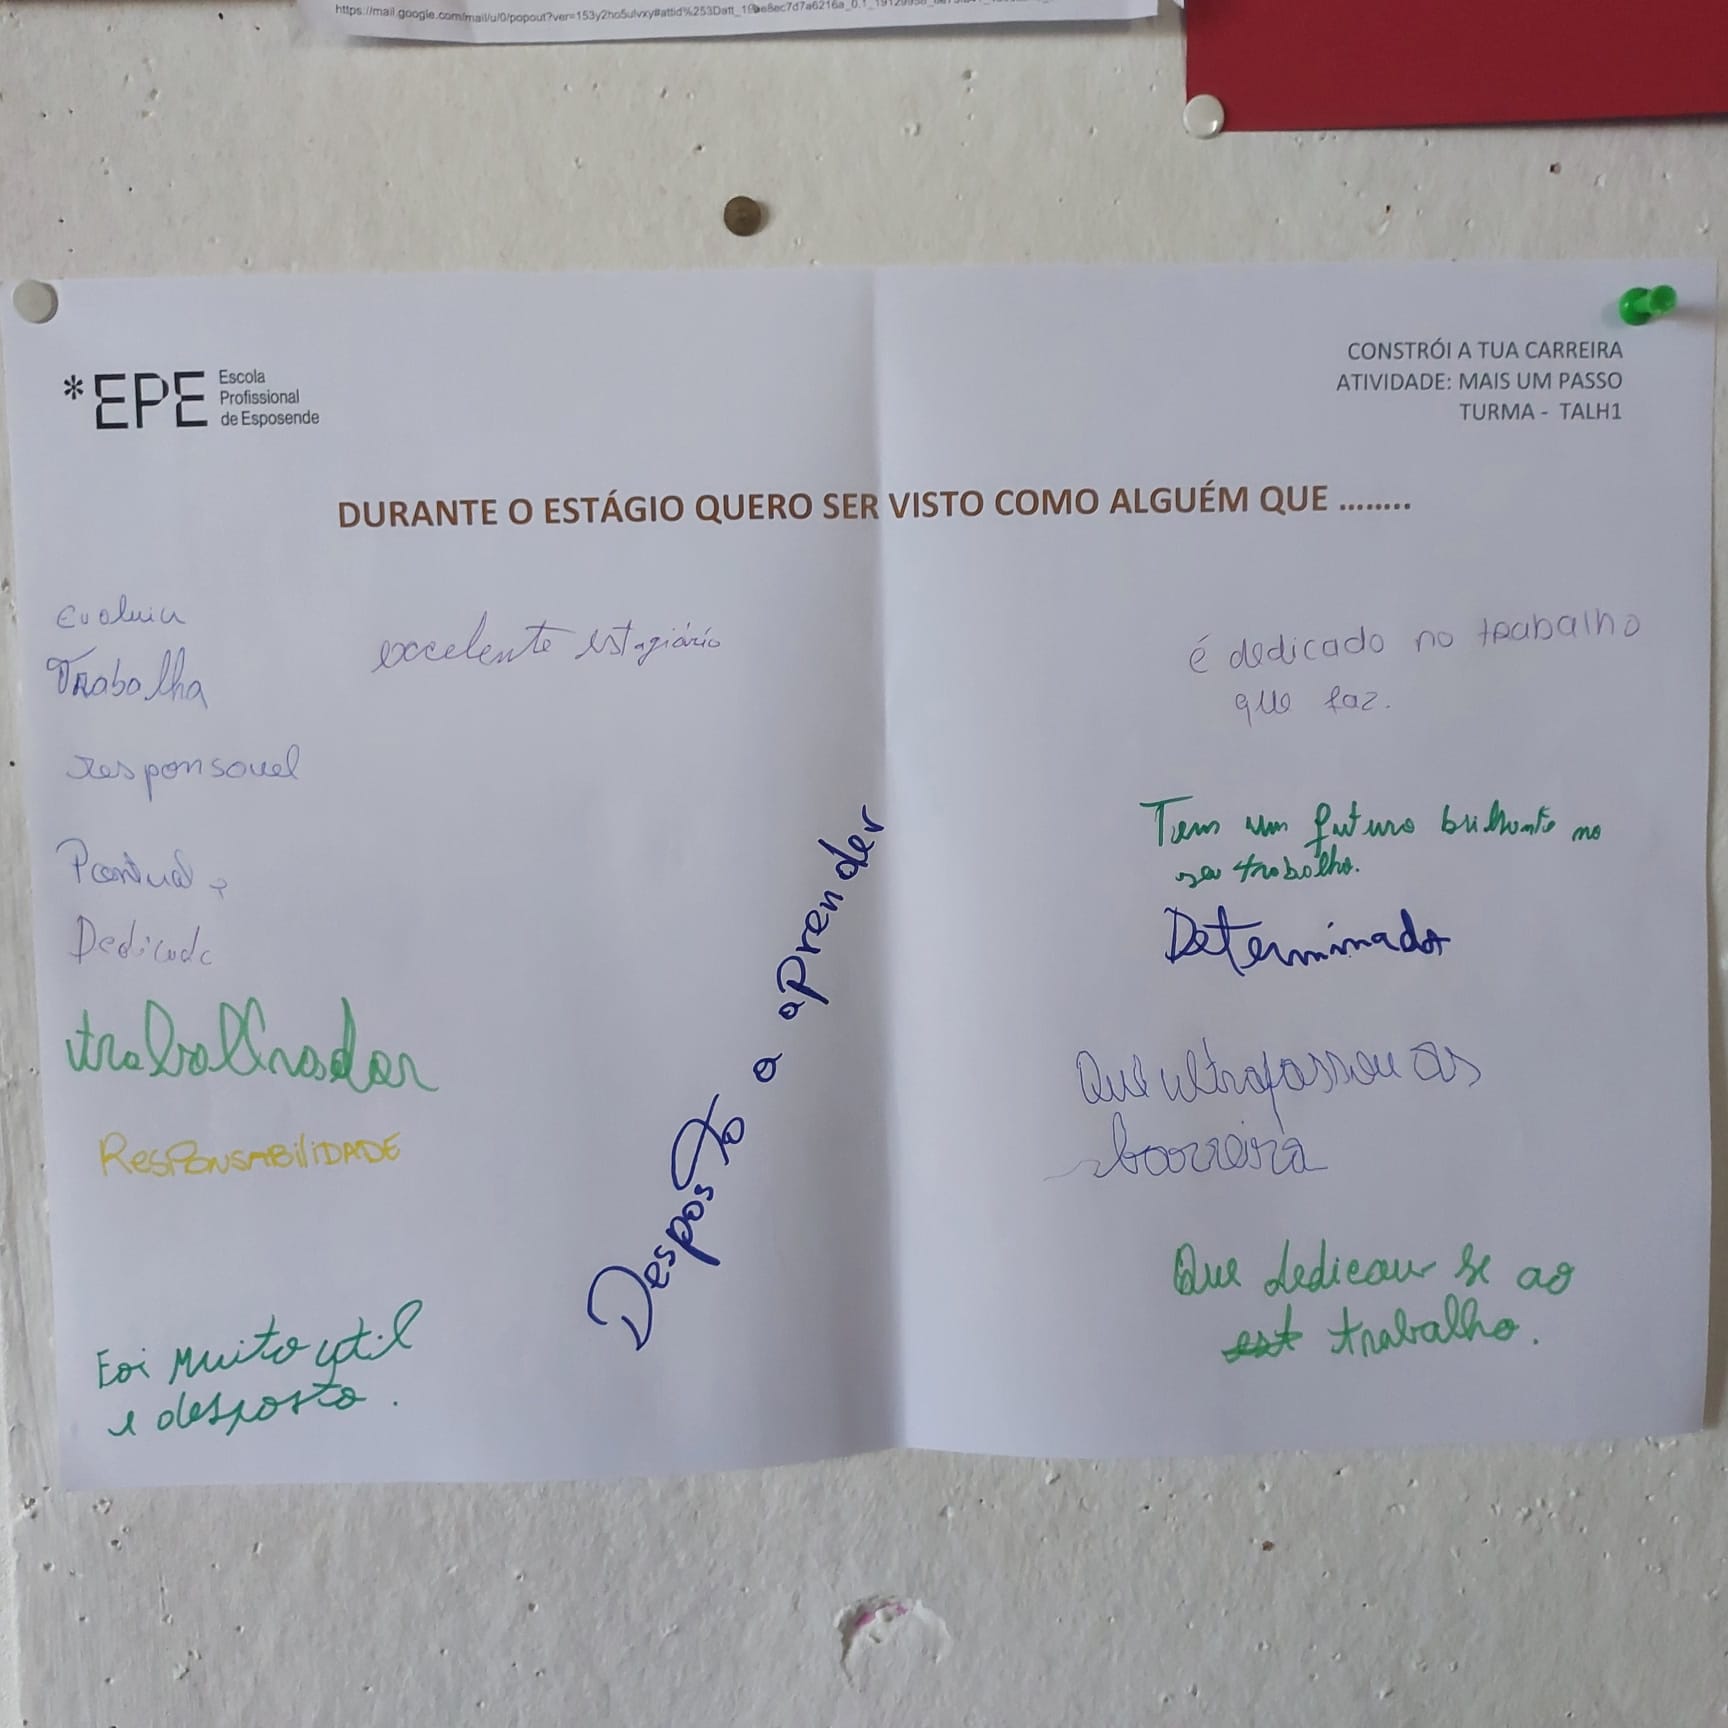 *EPE Escola
Profissional
de Esposende
CONSTRÓI A TUA CARREIRA
ATIVIDADE: MAIS UM PASSO
TURMA - TALH1
DURANTE O ESTÁGIO QUERO SER VISTO COMO ALGUÉM QUE ........
evoluiu
Trabalha
responsavel
Pontual
Dedicado
trabalhador
RESPONSABiLiDADE
Foi muito util
e desposto.
excelente estagiário
Desposto a aprender
é dedicado no trabalho
que faz.
Tem um futuro brilhante no
seu trabalho.
Determinado
Que ultrapassou as
barreira
Que dedicou se ao
trabalho.